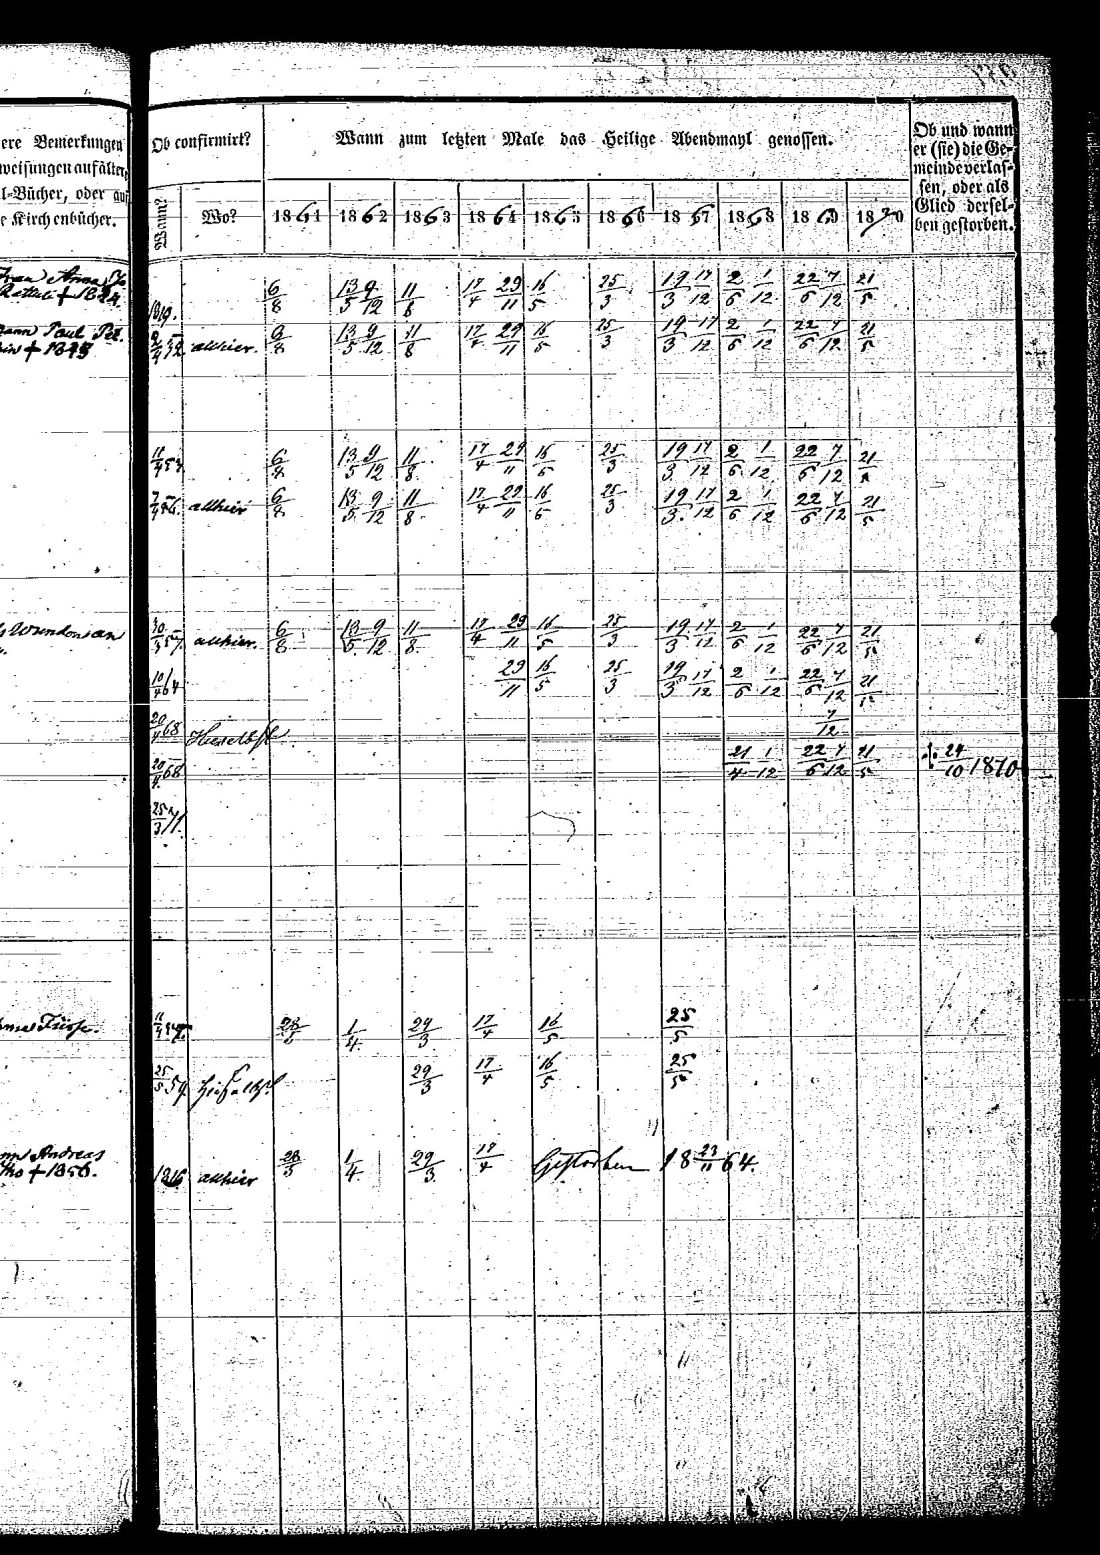 ere Bemerkungen
weisungen auf älter
l-Bücher, oder auf
e Kirchenbücher.
Ob confirmirt?
Wann?
Wo?
Wann zum letzten Male das Heilige Abendmahl genossen.
1861 1862 1863 1864 1865 1866 1867 1868 1869 1870
Ob und wann
er (sie) die Ge-
meinde verlas-
sen, oder als
Glied dersel-
ben gestorben.
Frau Anna
1819. 6/8 13/5 9/12 11/8 17/4 29/11 16/5 25/3 19/3 17/12 2/6 1/12 22/6 7/12 21/5
mann Paul Pet.
† 1849
allhier. 6/8 13/5 9/12 11/8 17/4 29/11 16/5 25/3 19/3 17/12 2/6 1/12 22/6 7/12 21/5
6/8 13/5 9/12 11/8 17/4 29/11 16/5 25/3 19/3 17/12 2/6 1/12 22/6 7/12 21/5
allhier 6/8 13/5 9/12 11/8 17/4 29/11 16/5 25/3 19/3 17/12 2/6 1/12 22/6 7/12 21/5
30/3 57. allhier. 6/8 13/5 9/12 11/8 17/4 29/11 16/5 25/3 19/3 17/12 2/6 1/12 22/6 7/12 21/5
64 29/11 16/5 25/3 19/3 17/12 2/6 1/12 22/6 7/12 21/5
20/4 68 Hieselbst 7/12
20/4 68 21/4 1/12 22/6 7/12 21/5 24/10 1870
71.
1/4 29/3 17/4 16/5 25/5
25/5 59. 29/3 17/4 16/5 25/5
Andreas
† 1856.
1816 allhier 28/5 1/4 29/3 17/4 Gestorben 18 23/11 64.